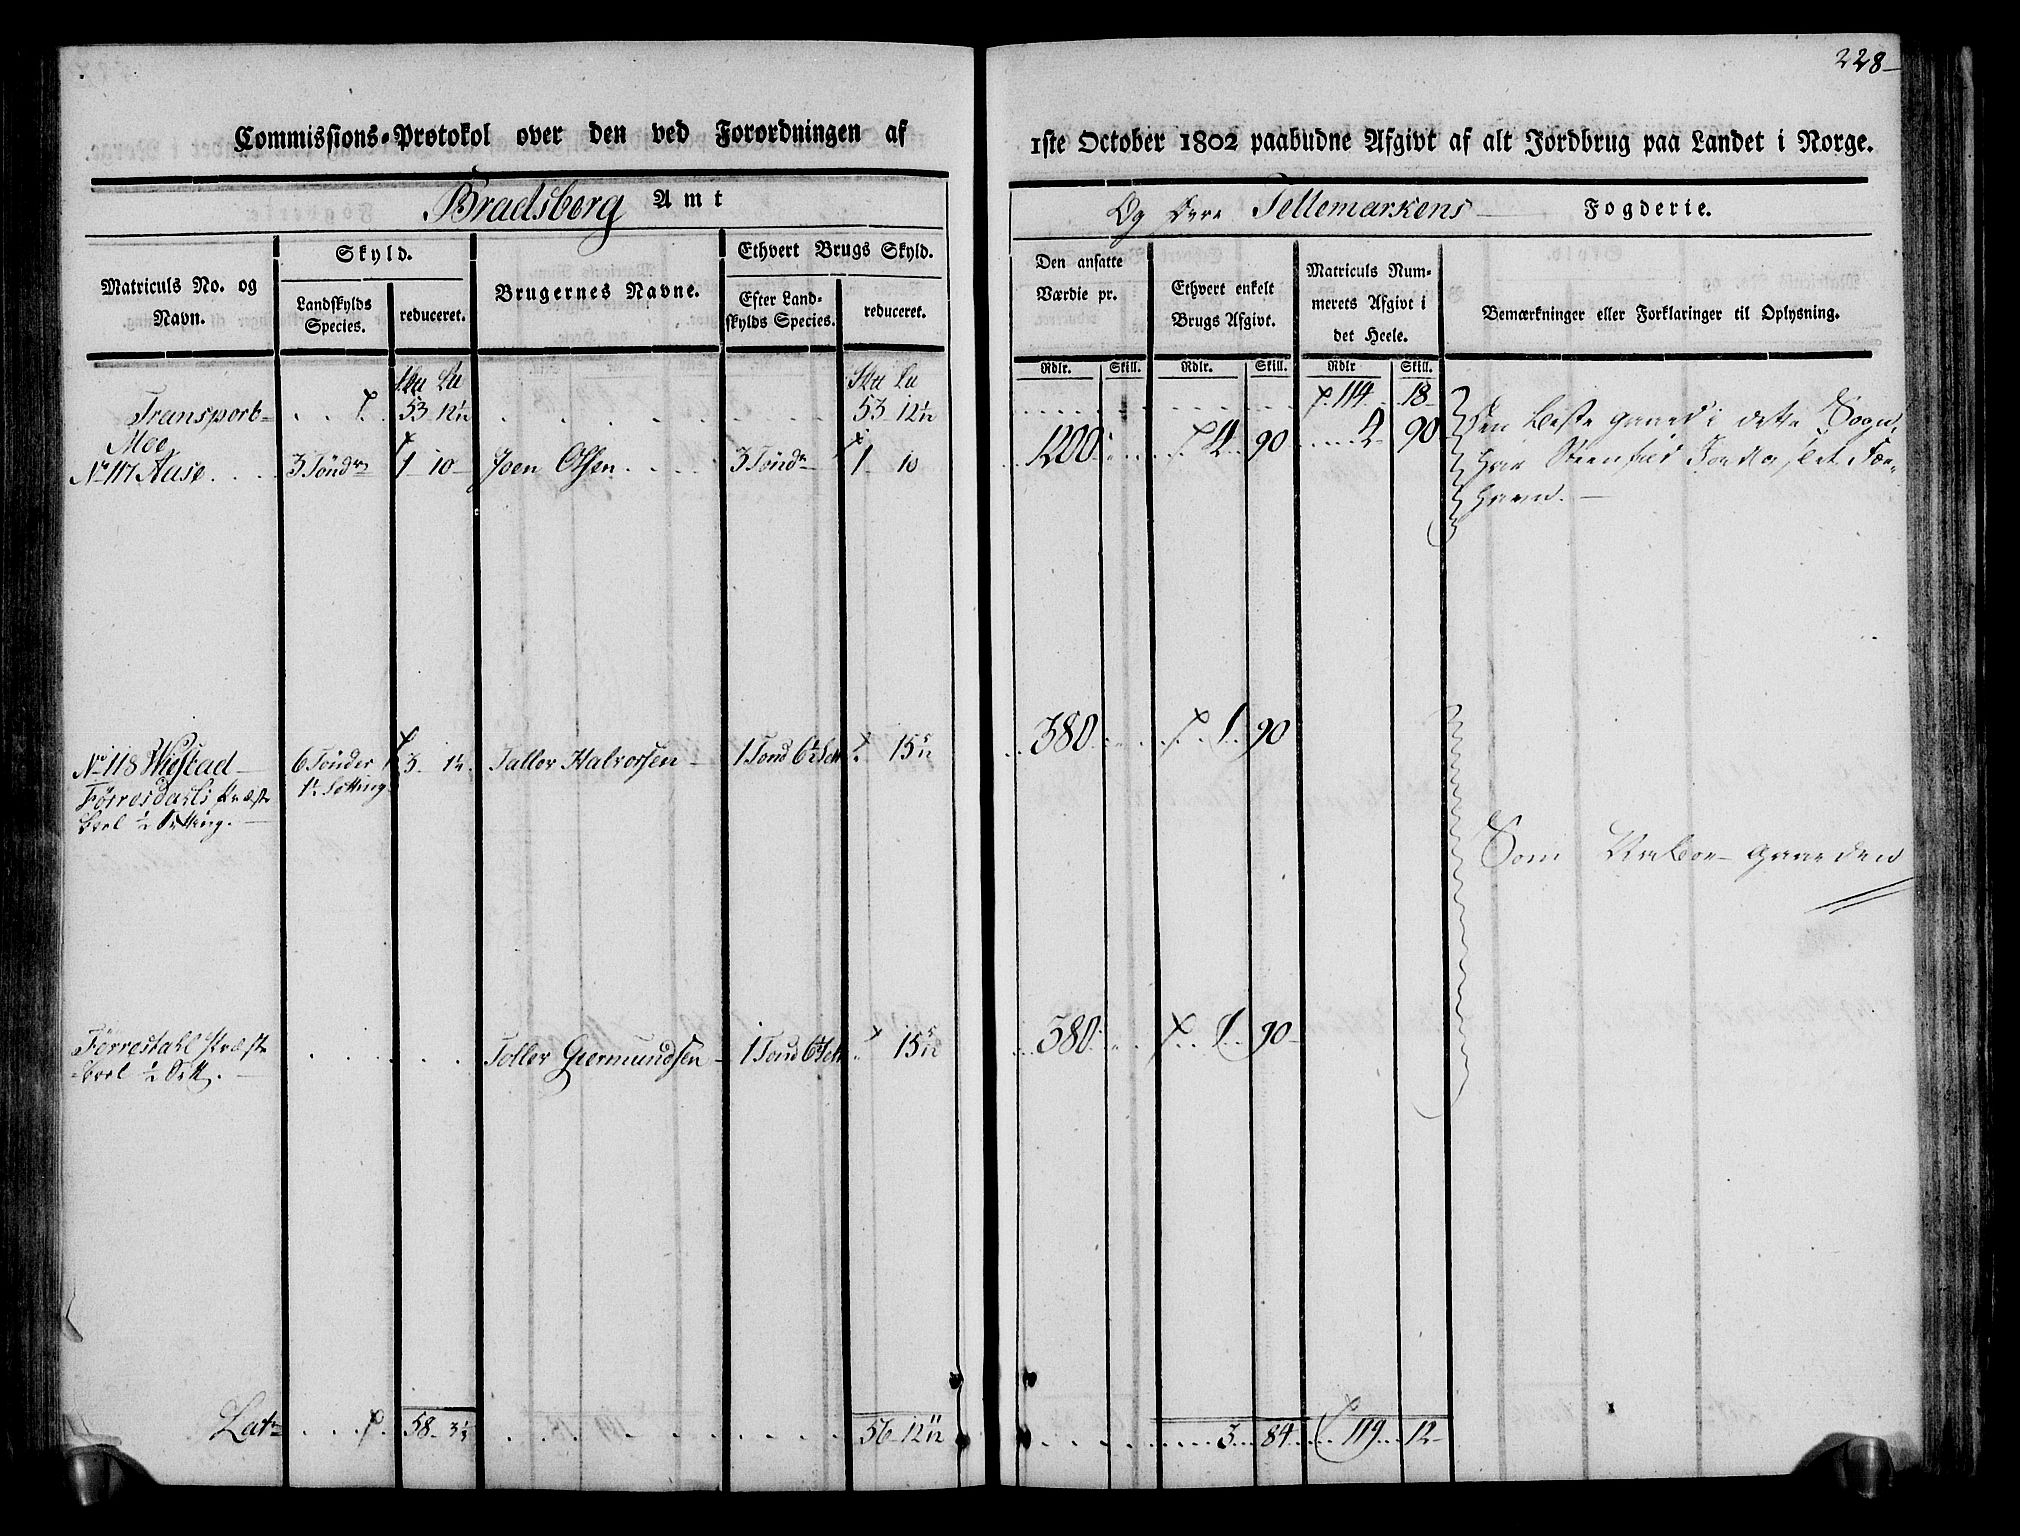 228
Commissions-Protokol over den ved Forordningen af
1ste October 1802 paabudne Afgivt af alt Jordbrug paa Landet i Norge.
Bradsberg Amt
Og Øvre Tellemarkens Fogderie.
Matriculs No. og Navn.
Skyld.
Landskylds Species.
reduceret.
Brugernes Navne.
Ethvert Brugs Skyld.
Efter Landskylds Species.
reduceret.
Den ansatte Værdie pr.
Ethvert enkelt Brugs Afgivt.
Matriculs Nummerets Afgivt i det Heele.
Bemærkninger eller Forklaringer til Oplysning.
Rdlr. Skill. Rdlr. Skill. Rdlr Skill.
Transport 53 12½ 53 12½ 114 18
Moe,
No 117 Aase 3 Tøndr 1 10 Joen Olsen 3 Tøndr 1 10 1200 2 90 2 90
Den beste gaard i dette Sogn,
No 118 Wiestad 6 Tønder 3 1½ Taller Halvorsen 1 Tond 15 380 1 90
1½ Setting
Som gaarden
Toller Giermundsen 1 Tond 15 380 1 90
Lat 58 3½ 56 12 3 84 119 12